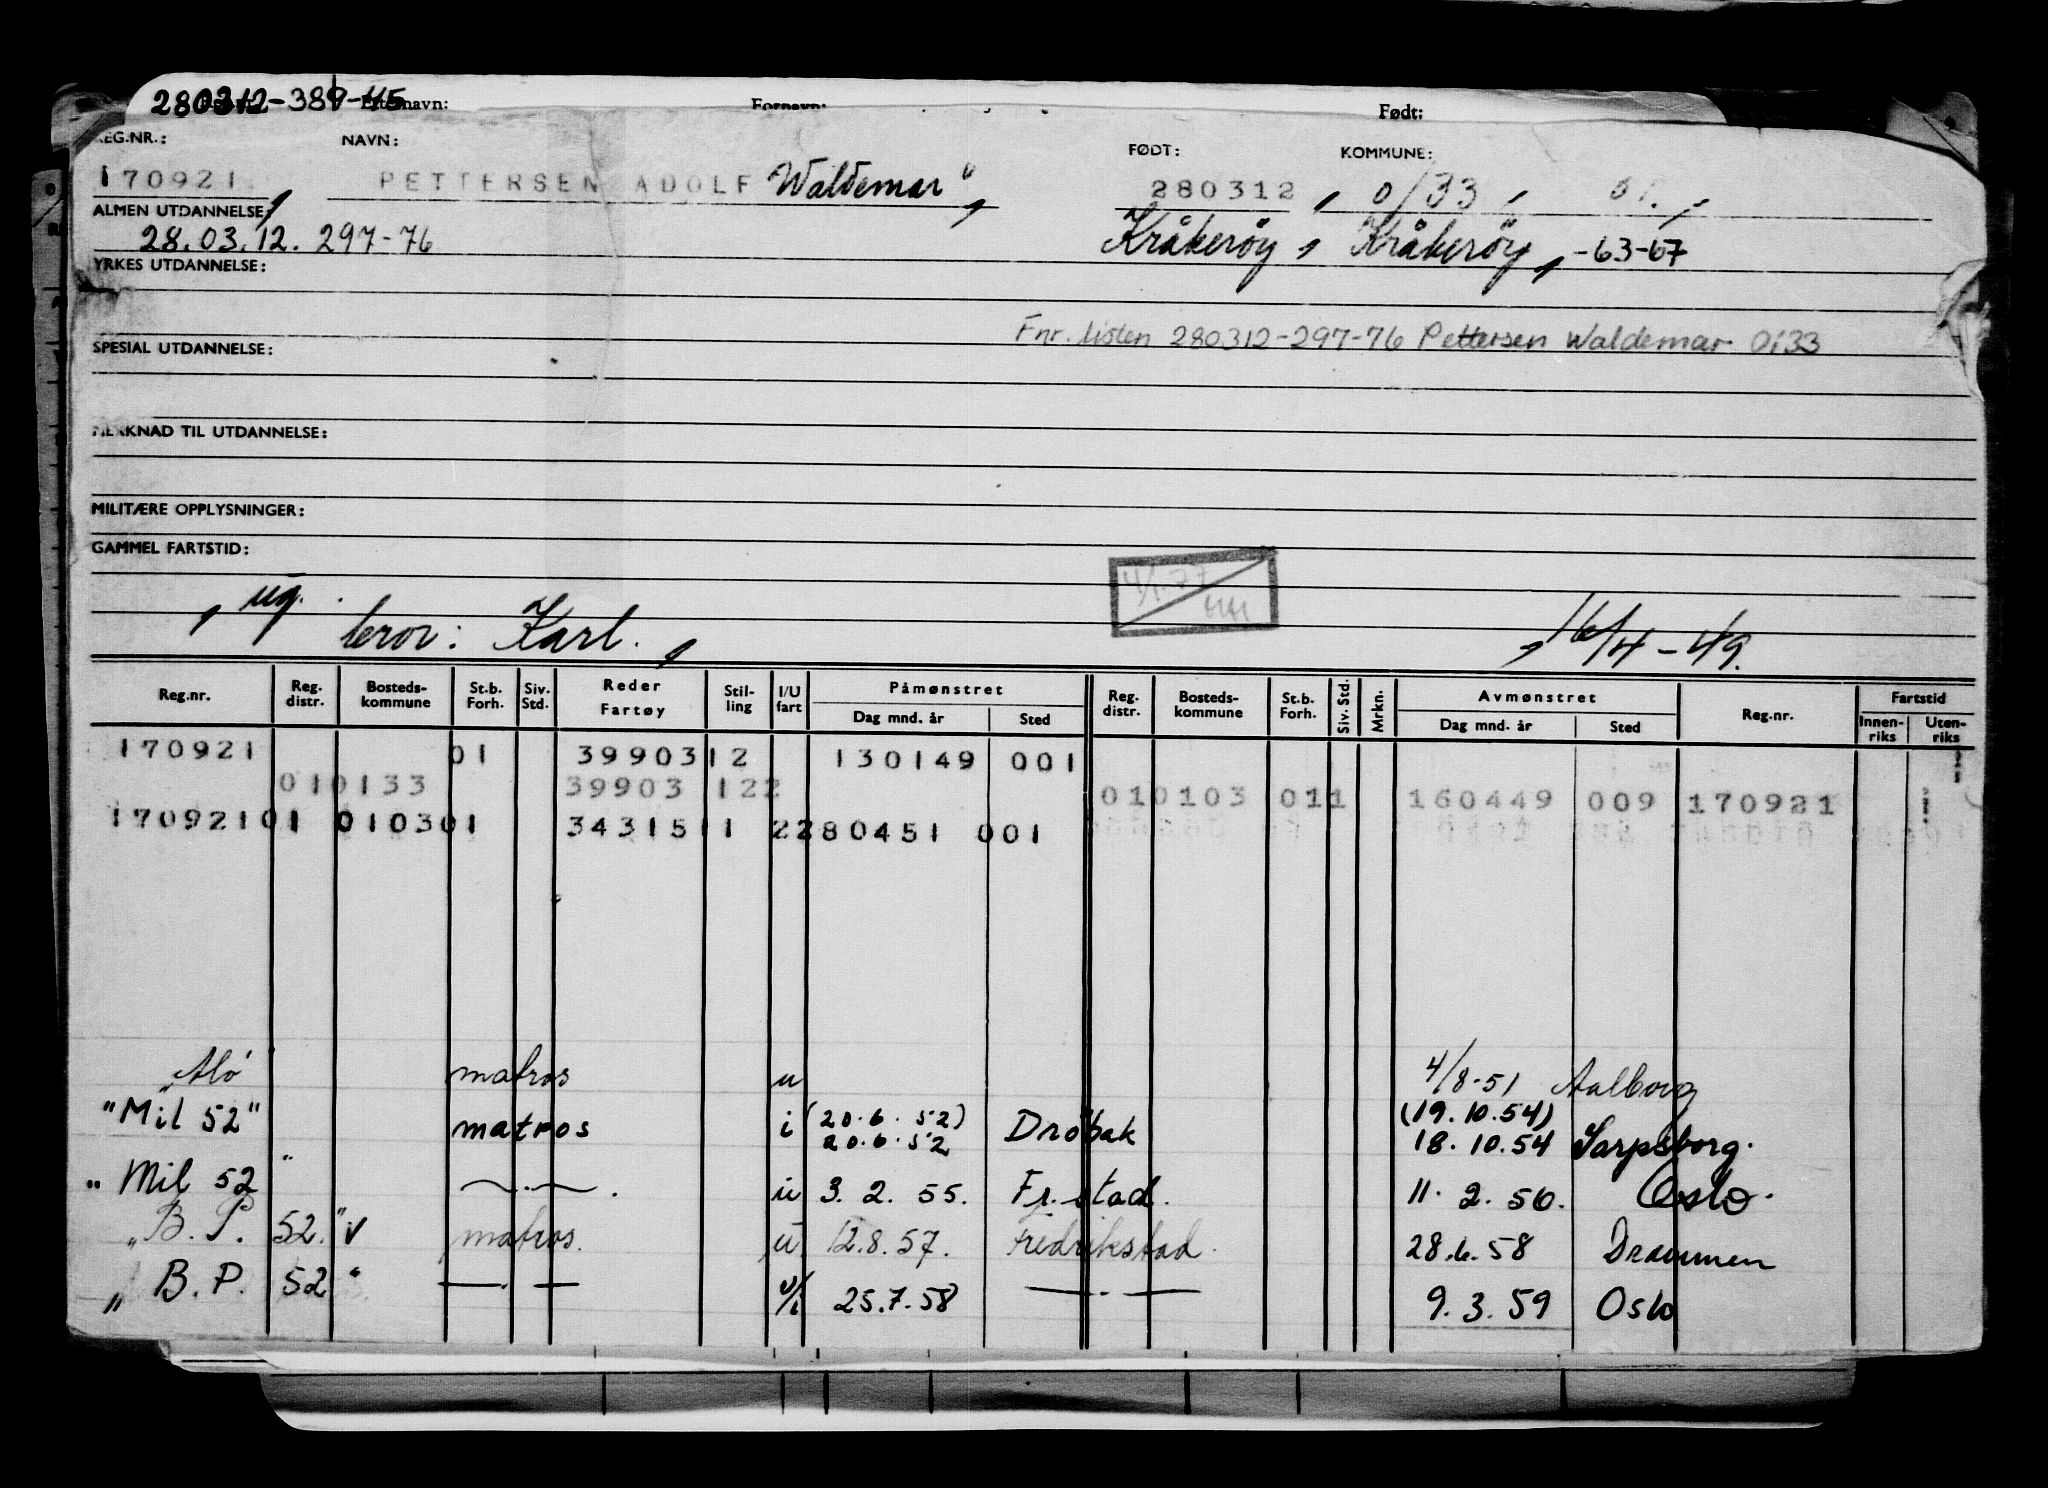 280312-389-45 Etternavn: Fornavn: Født:
REG.NR.: NAVN: FØDT: KOMMUNE:
170921 PETTERSEN ADOLF Waldemar" 280312, 0/33, 01.
ALMEN UTDANNELSE:
28.03.12. 297-76 Kråkerøy, Kråkerøy, -63-67
YRKES UTDANNELSE:
Fnr. listen 280312-297-76 Pettersen Waldemar 0133
SPESIAL UTDANNELSE:
MERKNAD TIL UTDANNELSE:
MILITÆRE OPPLYSNINGER:
GAMMEL FARTSTID:
, ug.
bror: Karl. , , 16/4-49.
Reg.nr. Reg. distr. Bosteds- kommune St.b. Forh. Siv. Std. Reder Fartøy Stil- ling I/U fart Påmønstret Dag mnd. år Sted Reg. distr. Bosteds- kommune St.b. Forh. Siv. Std. Mrkn. Avmønstret Dag mnd. år Sted Reg.nr. Fartstid Innen- riks Uten- riks
170921 01 3990312 130149 001
010133 39903 122 010103 011 160449 009 170921
17092101 010301 3431511 2280451 001
"Alo matros u 4/8-51 Aalborg
"Mil 52" matros i (20.6.52) (19.10.54)
20.6.52 Drøbak 18.10.54 Sarpsborg.
" Mil 52 " —.— . u 3. 2. 55. Fr.stad. 11. 2. 56. Oslo.
" B. P. 52." v matros. u 12.8.57. Fredrikstad. 28.6.58 Drammen
" B. P. 52 " —.— u/i 25.7.58 —.— 9.3.59 Oslo